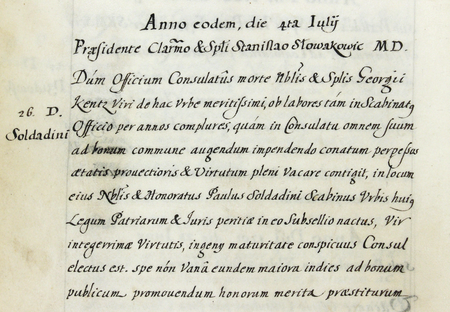 Anno eodem, die 4ta Iulij
Præsidente Clarmo & Spli Stanislao Słowakowic M D.
Dúm Officium Consulatûs morte Nblis & Splis Georgii
Kentz Viri de hac Vrbe meritissimi, ob labores tám in Scabinatq
26. D.
Soldadini
Officio per annos complures, quám in Consulatu omnem suum
ad bonum commune augendum impendendo conatum perpessos
ætatis prouectioris & Virtutum pleni vacare contigit, in locum
eius Nblis & Honoratus Paulus Soldadini Scabinus Vrbis huiq
Legum Patriarum & Iuris peritiæ in eo Subsellio nactus, Vir
integerrimæ Virtutis, ingeny maturitate conspicuus Consul
electus est. spe nón Vanâ eundem maiora indies ad bonum
publicum promouendum honorum merita præstiturum